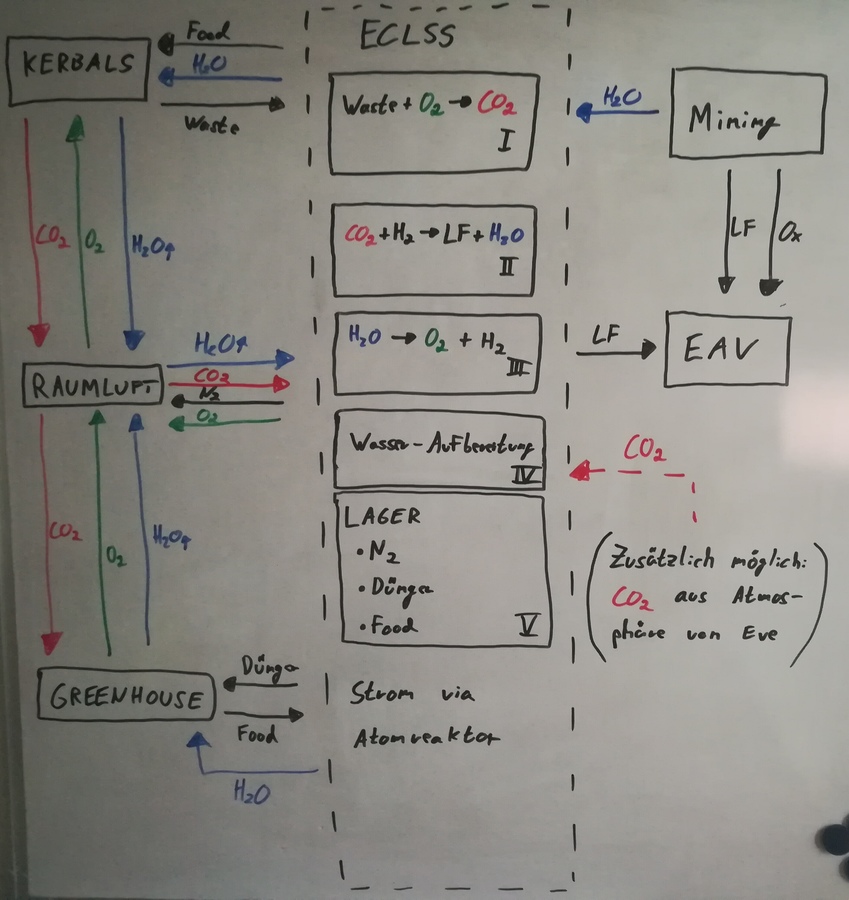 ECLSS
KERBALS
Food
H₂O
Waste
Waste + O₂ → CO₂
I
H₂O
Mining
CO₂
O₂
H₂O↑
CO₂ + H₂ → LF + H₂O
II
LF
Ox
H₂O → O₂ + H₂
III
LF
EAV
RAUMLUFT
H₂O↑
CO₂
N₂
O₂
Wasser-Aufbereitung
IV
CO₂
LAGER
• N₂
• Dünger
• Food
V
(Zusätzlich möglich:
CO₂ aus Atmos-
phäre von Eve)
CO₂
O₂
H₂O↑
GREENHOUSE
Dünger
Food
H₂O
Strom via
Atomreaktor